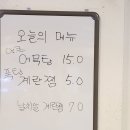 오늘의 메뉴
어묵탕 15.0
계란찜 5.0
날치알 계란찜 7.0